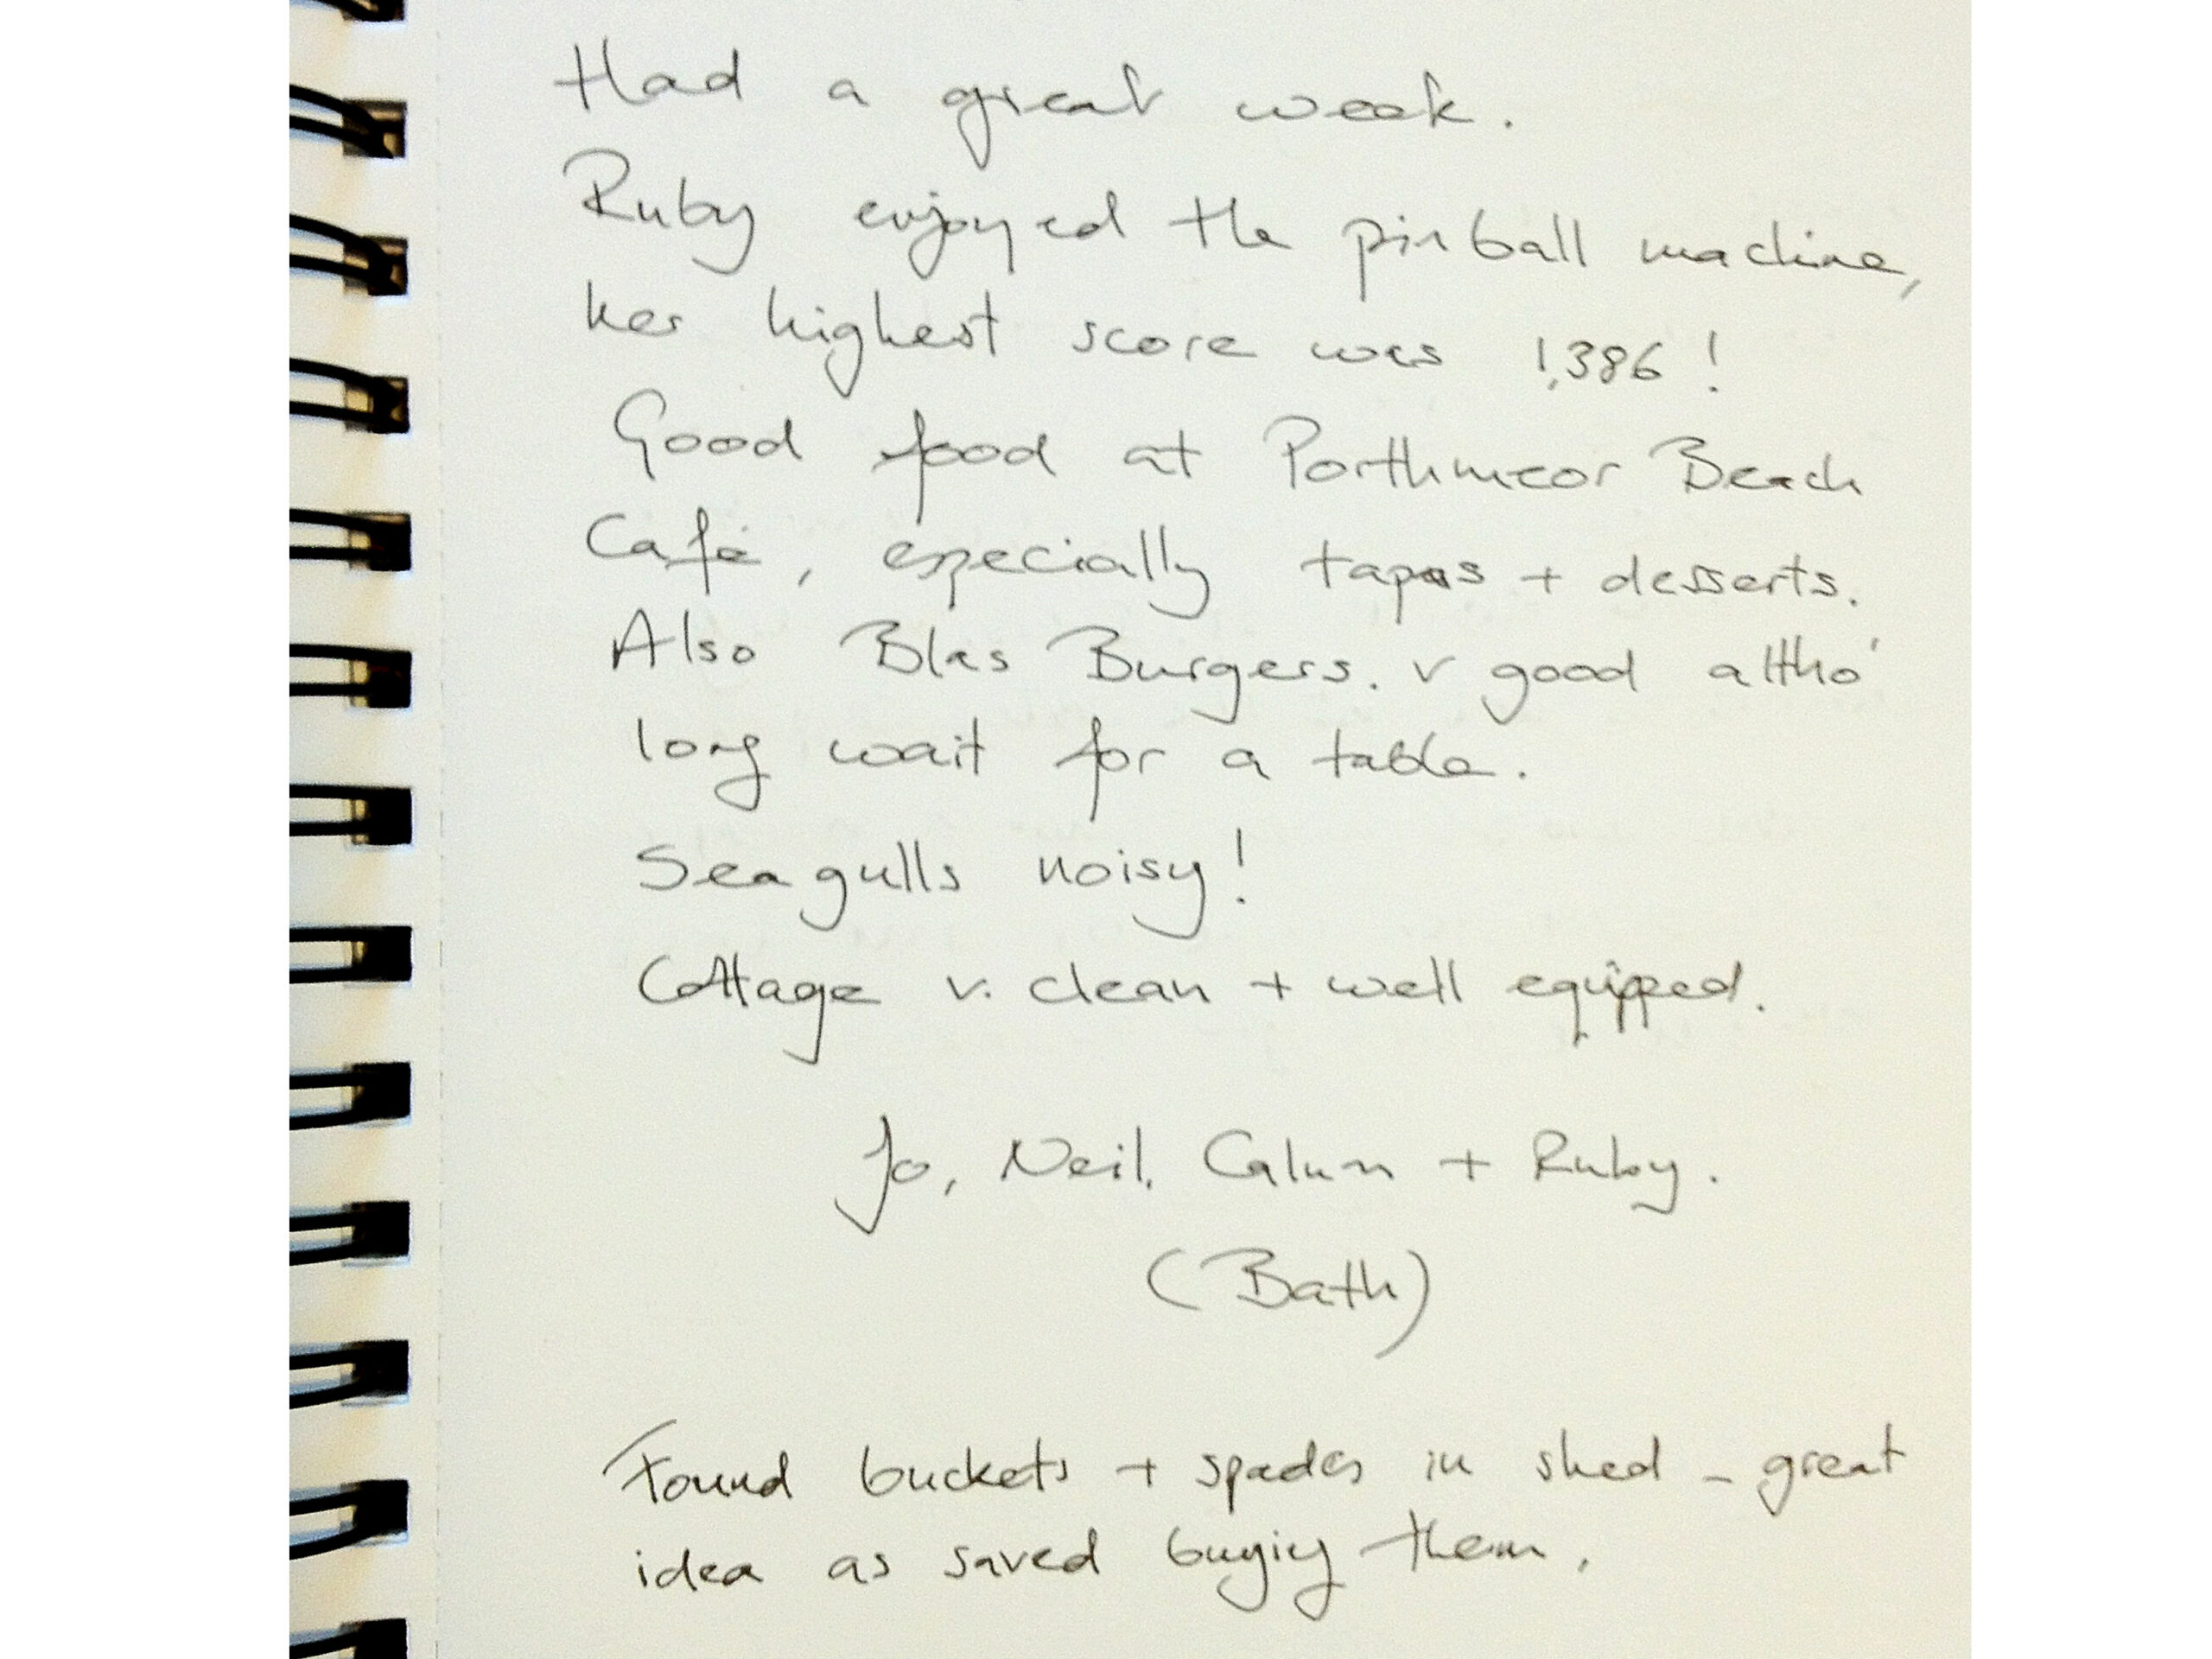 Had a great week.
Ruby enjoyed the pinball machine,
her highest score was 1,386!
Good food at Porthmeor Beach
Café, especially tapas + desserts.
Also Blas Burgers. v good altho'
long wait for a table.
Seagulls noisy!
Cottage v. clean + well equipped.
Jo, Neil, Calum + Ruby.
(Bath)
Found buckets + spades in shed - great
idea as saved buying them.